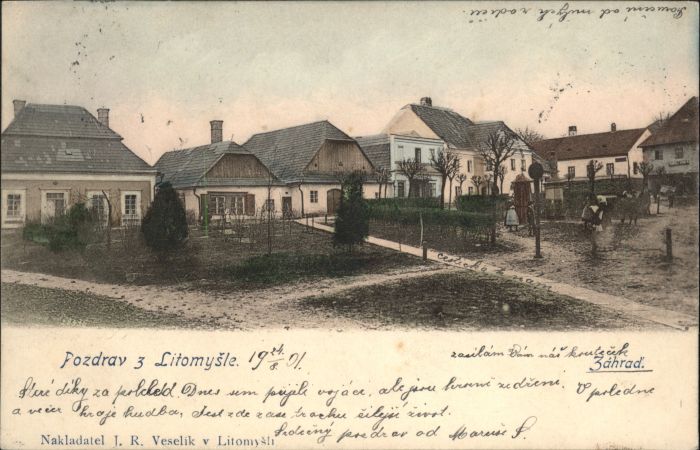 Loučení od milých rodičů.
Pozdrav z Litomyšle. 19 24/8 01.
zasílám Vám náš kouteček
Záhraď.
díky za pohled. Dnes sem přijeli vojáci, ale jsou hrozně zedřeni. V poledne
a večer hraje hudba, Jest zde zase trochu čilejší život.
Srdečný pozdrav od Maruše S.
Nakladatel J. R. Veselík v Litomyšli